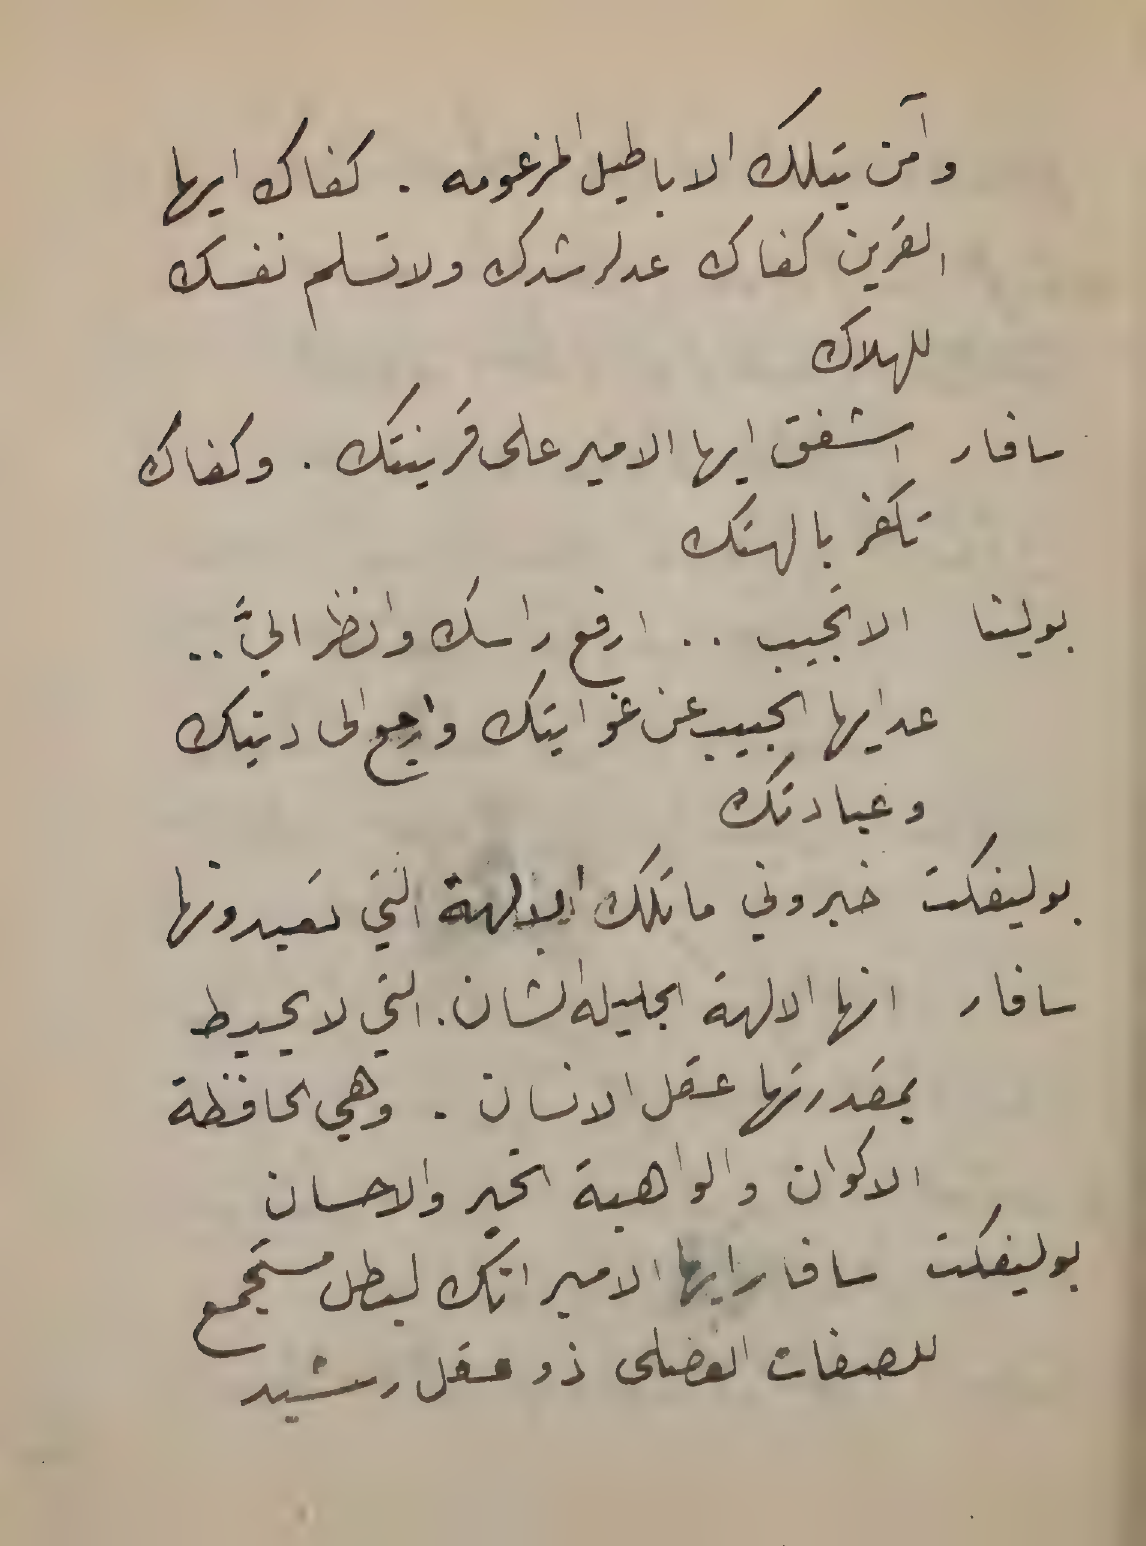 وآمن بتلك الاباطيل المزعومه . كفاك ايها
القرين كفاك عد لرشدك ولا تسلم نفسك
للهلاك
سافار اشفق ايها الامير على قرينتك . وكفاك
تكفر بالهتك
بولينا الا تجيب .. ارفع راسك وانظر اليَّ ..
عد ايها الحبيب عن غوايتك وارجع الى ديتك
وعبادتك
بوليفكت خبروني ما تلك الالهة التي تعبدونها
سافار انها الالهة الجليلة الشان . التي لا يحيط
بمقدرتها عقل الانسان . وهي الحافظة
الاكوان والواهبة الخير والاحسان
بوليفكت سافار ايها الامير انك لبطل مستجمع
للصفات الفضلى ذو عقل رشيد